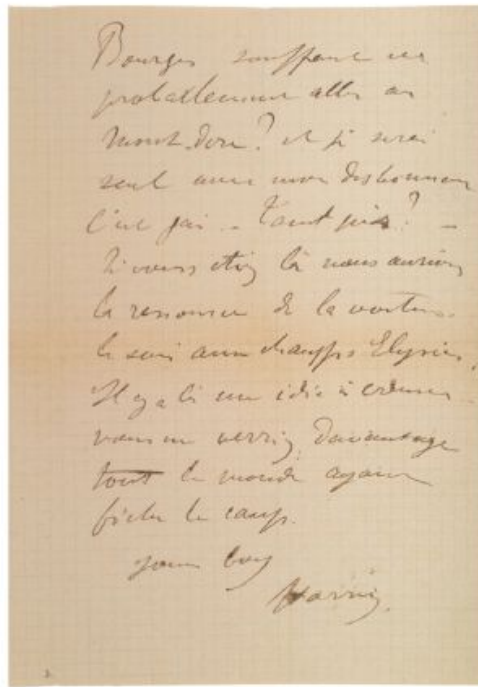 Bourges souffrant va
probablement aller au
Mont-Dore? et je serai
seul avec mon déshonneur
c'est gai - Tant pis? -
Si vous étiez là nous aurions
la ressource de la voiture
le soir aux champs Elysées.
Il y a là une idée à creuser
vous me verriez davantage
tout le monde ayant
fichu le camp.
your boy